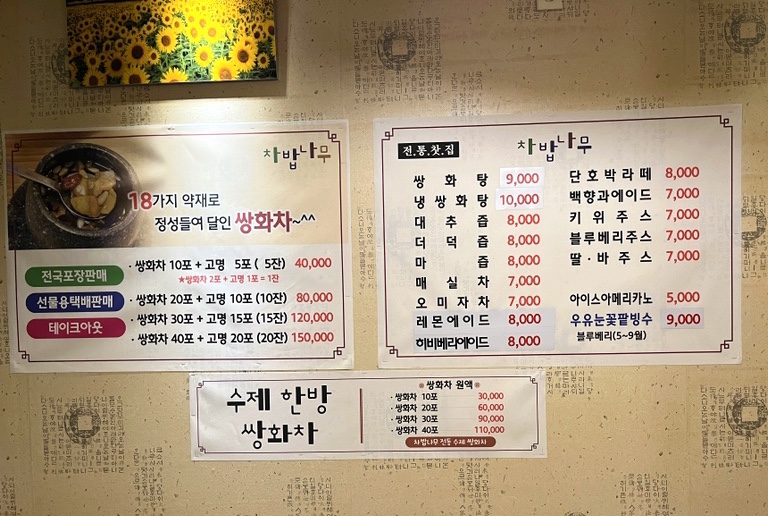 차밥나무
18가지 약재로
정성들여 달인 쌍화차~^^
전국포장판매
선물용택배판매
테이크아웃
· 쌍화차 10포 + 고명 5포 ( 5잔) 40,000
★쌍화차 2포 + 고명 1포 = 1잔
· 쌍화차 20포 + 고명 10포 (10잔) 80,000
· 쌍화차 30포 + 고명 15포 (15잔) 120,000
· 쌍화차 40포 + 고명 20포 (20잔) 150,000
전.통.찻.집
차밥나무
쌍화탕 9,000
냉쌍화탕 10,000
대추즙 8,000
더덕즙 8,000
마즙 8,000
매실차 7,000
오미자차 7,000
레몬에이드 8,000
히비베리에이드 8,000
단호박라떼 8,000
백향과에이드 7,000
키위주스 7,000
블루베리주스 7,000
딸·바주스 7,000
아이스아메리카노 5,000
우유눈꽃팥빙수 9,000
블루베리(5~9월)
수제 한방
쌍화차
쌍화차 원액
· 쌍화차 10포 30,000
· 쌍화차 20포 60,000
· 쌍화차 30포 90,000
· 쌍화차 40포 110,000
차밥나무 전통 수제 쌍화차